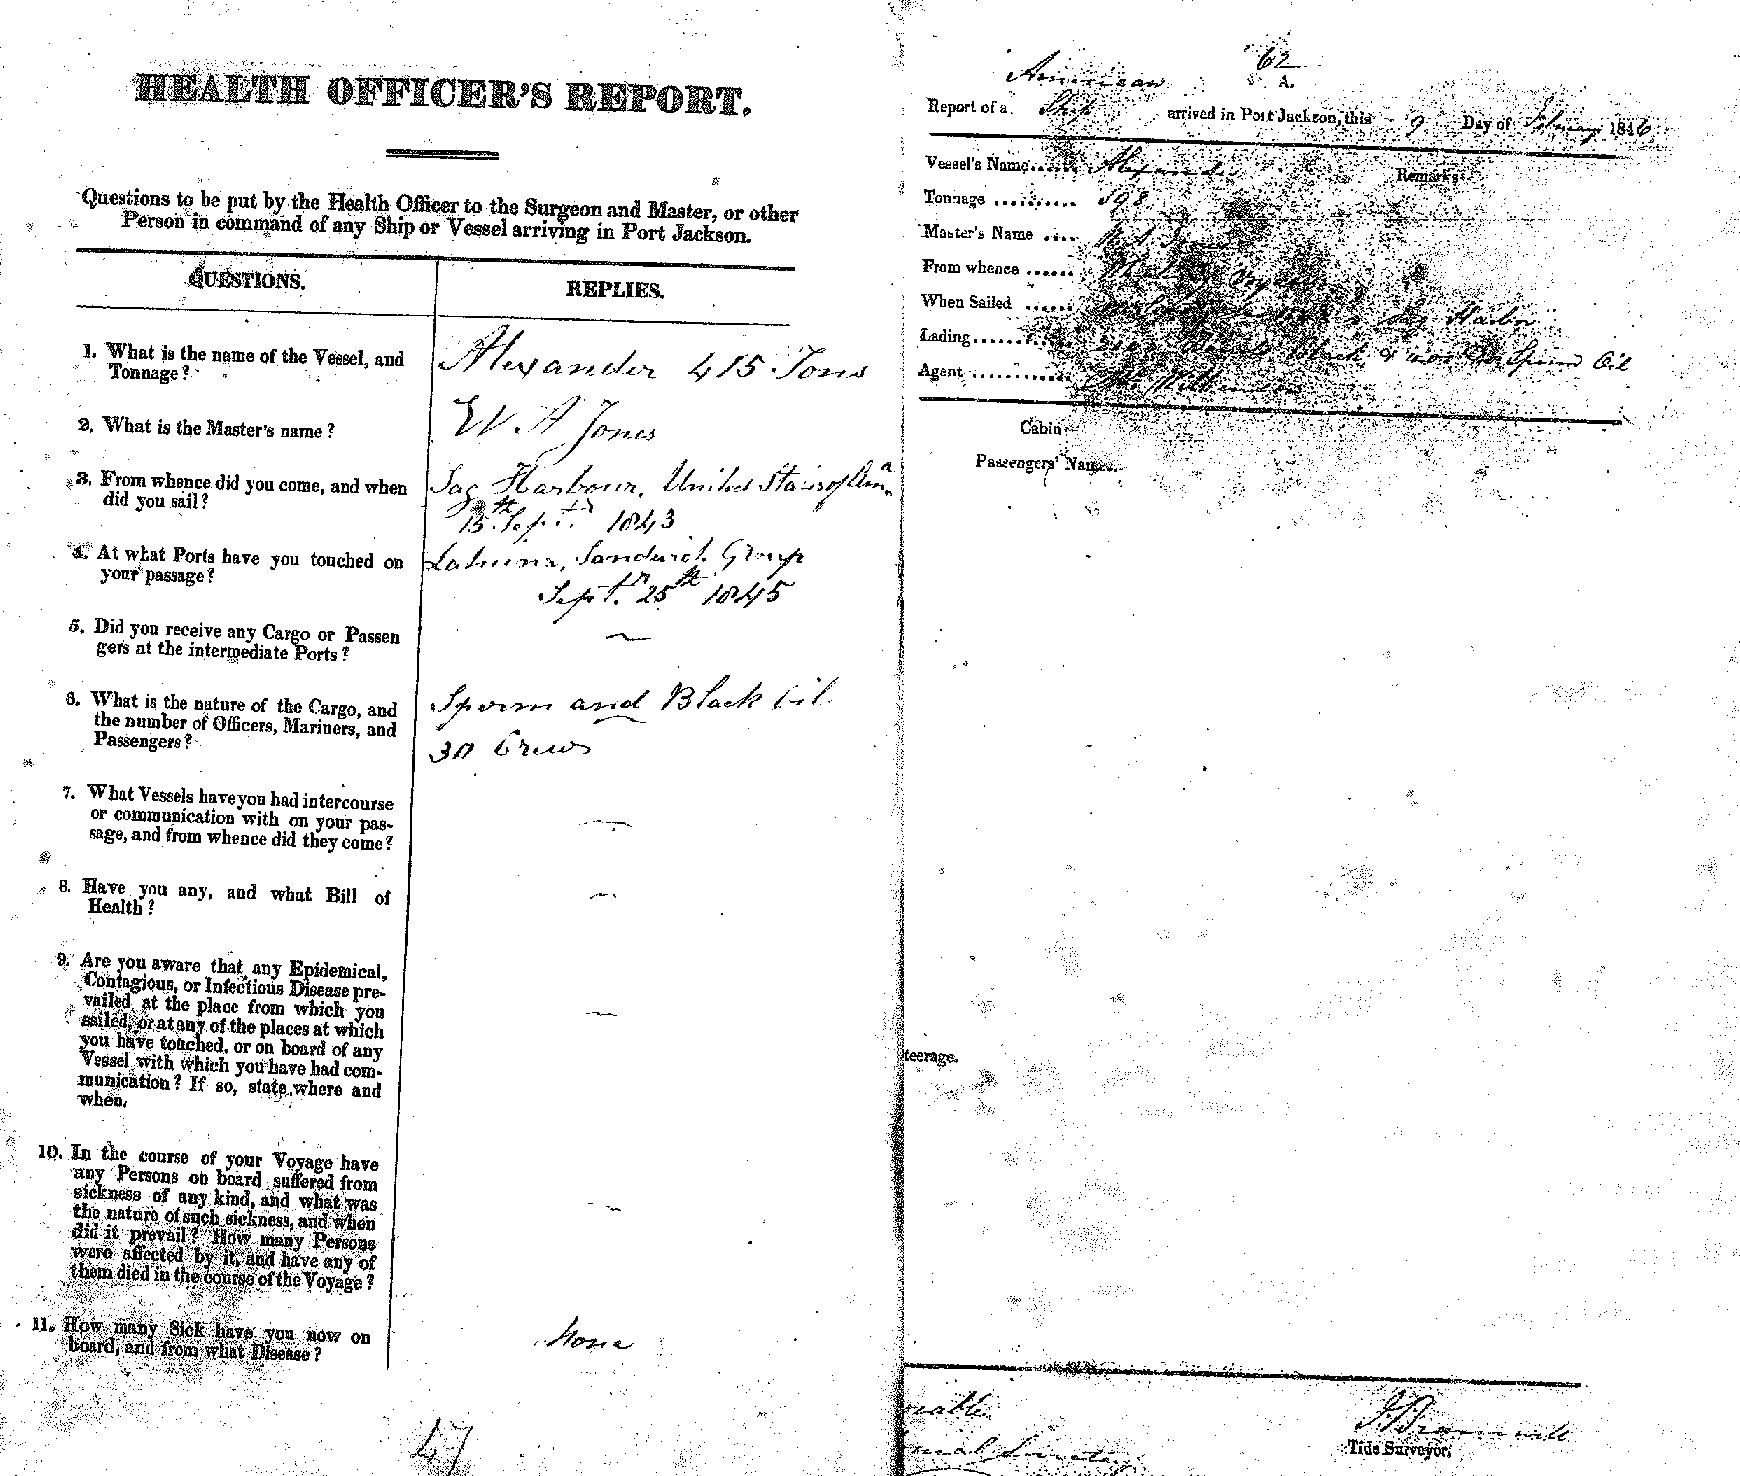 HEALTH OFFICER'S REPORT.
Questions to be put by the Health Officer to the Surgeon and Master, or other
Person in command of any Ship or Vessel arriving in Port Jackson.
QUESTIONS.
REPLIES.
1. What is the name of the Vessel, and
Tonnage?
Alexander 415 Tons
2. What is the Master's name?
W A Jones
3. From whence did you come, and when
did you sail?
Sag Harbour, United States of Ama.
15th Septr. 1843
4. At what Ports have you touched on
your passage?
Lahina, Sandwich Group
Septr. 25th 1845
5. Did you receive any Cargo or Passen
gers at the intermediate Ports?
6. What is the nature of the Cargo, and
the number of Officers, Mariners, and
Passengers?
Sperm and Black Oil
30 Crew
7. What Vessels have you had intercourse
or communication with on your pas-
sage, and from whence did they come?
8. Have you any, and what Bill of
Health?
9. Are you aware that any Epidemical,
Contagious, or Infectious Disease pre-
vailed at the place from which you
sailed, or at any of the places at which
you have touched, or on board of any
Vessel with which you have had com-
munication? If so, state where and
when.
10. In the course of your Voyage have
any Persons on board suffered from
sickness of any kind, and what was
the nature of such sickness, and when
did it prevail? How many Persons
were affected by it, and have any of
them died in the course of the Voyage?
11. How many Sick have you now on
board, and from what Disease?
None
47
62
A.
American
Report of a Ship arrived in Port Jackson, this 9 Day of February 1846
Vessel's Name...... Alexander
Remarks
Tonnage .......... 398
Master's Name ....
From whence ......
When Sailed ...... Sag Harbor
Lading.......... Black & Sperm Oil
Agent ............
Cabin
Passengers' Names.
teerage.
J Bramwell
Tide Surveyor.